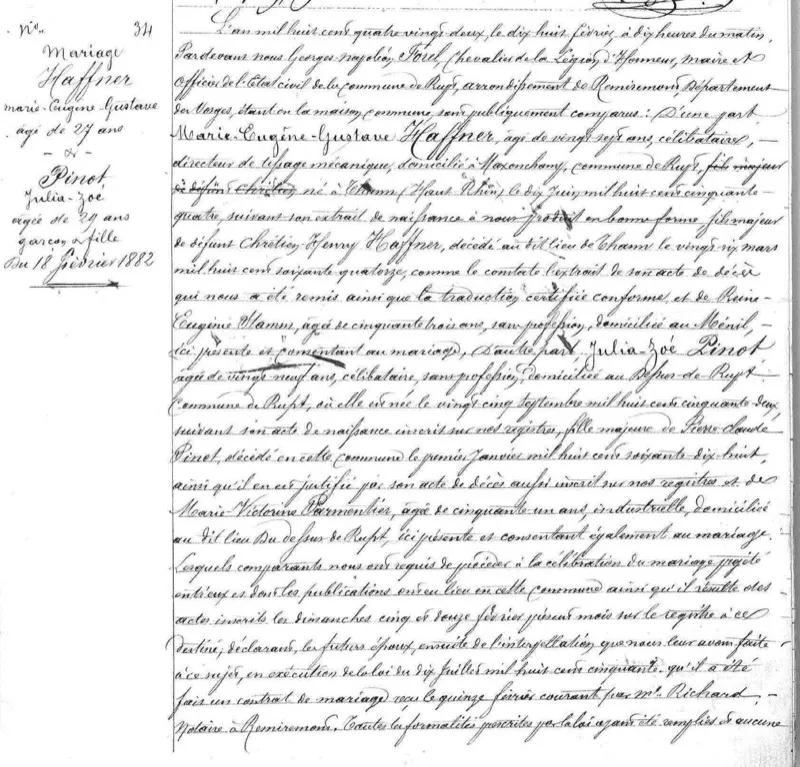 N° 34
Mariage
Haffner
marie-Eugène-Gustave
agé de 27 ans
- & -
Pinot
Julia-Zoé
agée de 29 ans
garçon & fille
Du 18 février 1882
L'an mil huit cent quatre vingt-deux, le dix huit février, à dix heures du matin,
Pardevant nous Georges-napoléon Forel, Chevalier de la Légion d'Honneur, maire et
Officier de l'Etat civil de la commune de Rupt, arrondissement de Remiremont, Département
des Vosges, étant en la maison commune, sont publiquement comparus: D'une part
Marie-Eugène-Gustave Haffner, âgé de vingt sept ans, célibataire, -
directeur de tissage mécanique, domicilié à Maxonchamp, commune de Rupt, fils majeur
de défunt Chrétien né à Thann (Haut Rhin) le dix Juin mil huit cent cinquante-
quatre, suivant son extrait de naissance à nous produit en bonne forme, fils majeur
de défunt Chrétien-Henry Haffner, décédé au dit lieu de Thann le vingt six mars
mil huit cent soixante quatorze, comme le constate l'extrait de son acte de décès
qui nous a été remis ainsi que la traduction certifiée conforme, et de Reine-
Eugénie Stamm, âgée de cinquante trois ans, sans profession, domiciliée au Ménil, -
ici présente et consentant au mariage, D'autre part Julia-Zoé Pinot
agée de vingt neuf ans, célibataire, sans profession, domiciliée au Dessus-de-Rupt
commune de Rupt, où elle est née le vingt cinq septembre mil huit cent cinquante-deux,
suivant son acte de naissance inscrit sur nos registres, fille majeure de Pierre-claude
Pinot, décédé en cette commune le premier Janvier mil huit cent soixante-dix-huit,
ainsi qu'il en est justifié par son acte de décès aussi inscrit sur nos registres et de
Marie-Victorine Parmentier, âgée de cinquante-un ans, industrielle, domiciliée
au dit lieu du dessus de Rupt, ici présente et consentant également au mariage.
Lesquels comparants nous ont requis de procéder à la célébration du mariage projeté
entr'eux et dont les publications ont eu lieu en cette commune ainsi qu'il résulte des
actes inscrits les dimanches cinq et douze février présent mois sur le registre à ce
destiné; déclarant, les futurs époux, ensuite de l'interpellation que nous leur avons faite
à ce sujet, en exécution de la loi du dix Juillet mil huit cent cinquante, qu'il a été
fait un contrat de mariage reçu le quinze février courant par Me Richard, -
Notaire à Remiremont. Toutes les formalités prescrites par la loi ayant été remplies et aucune